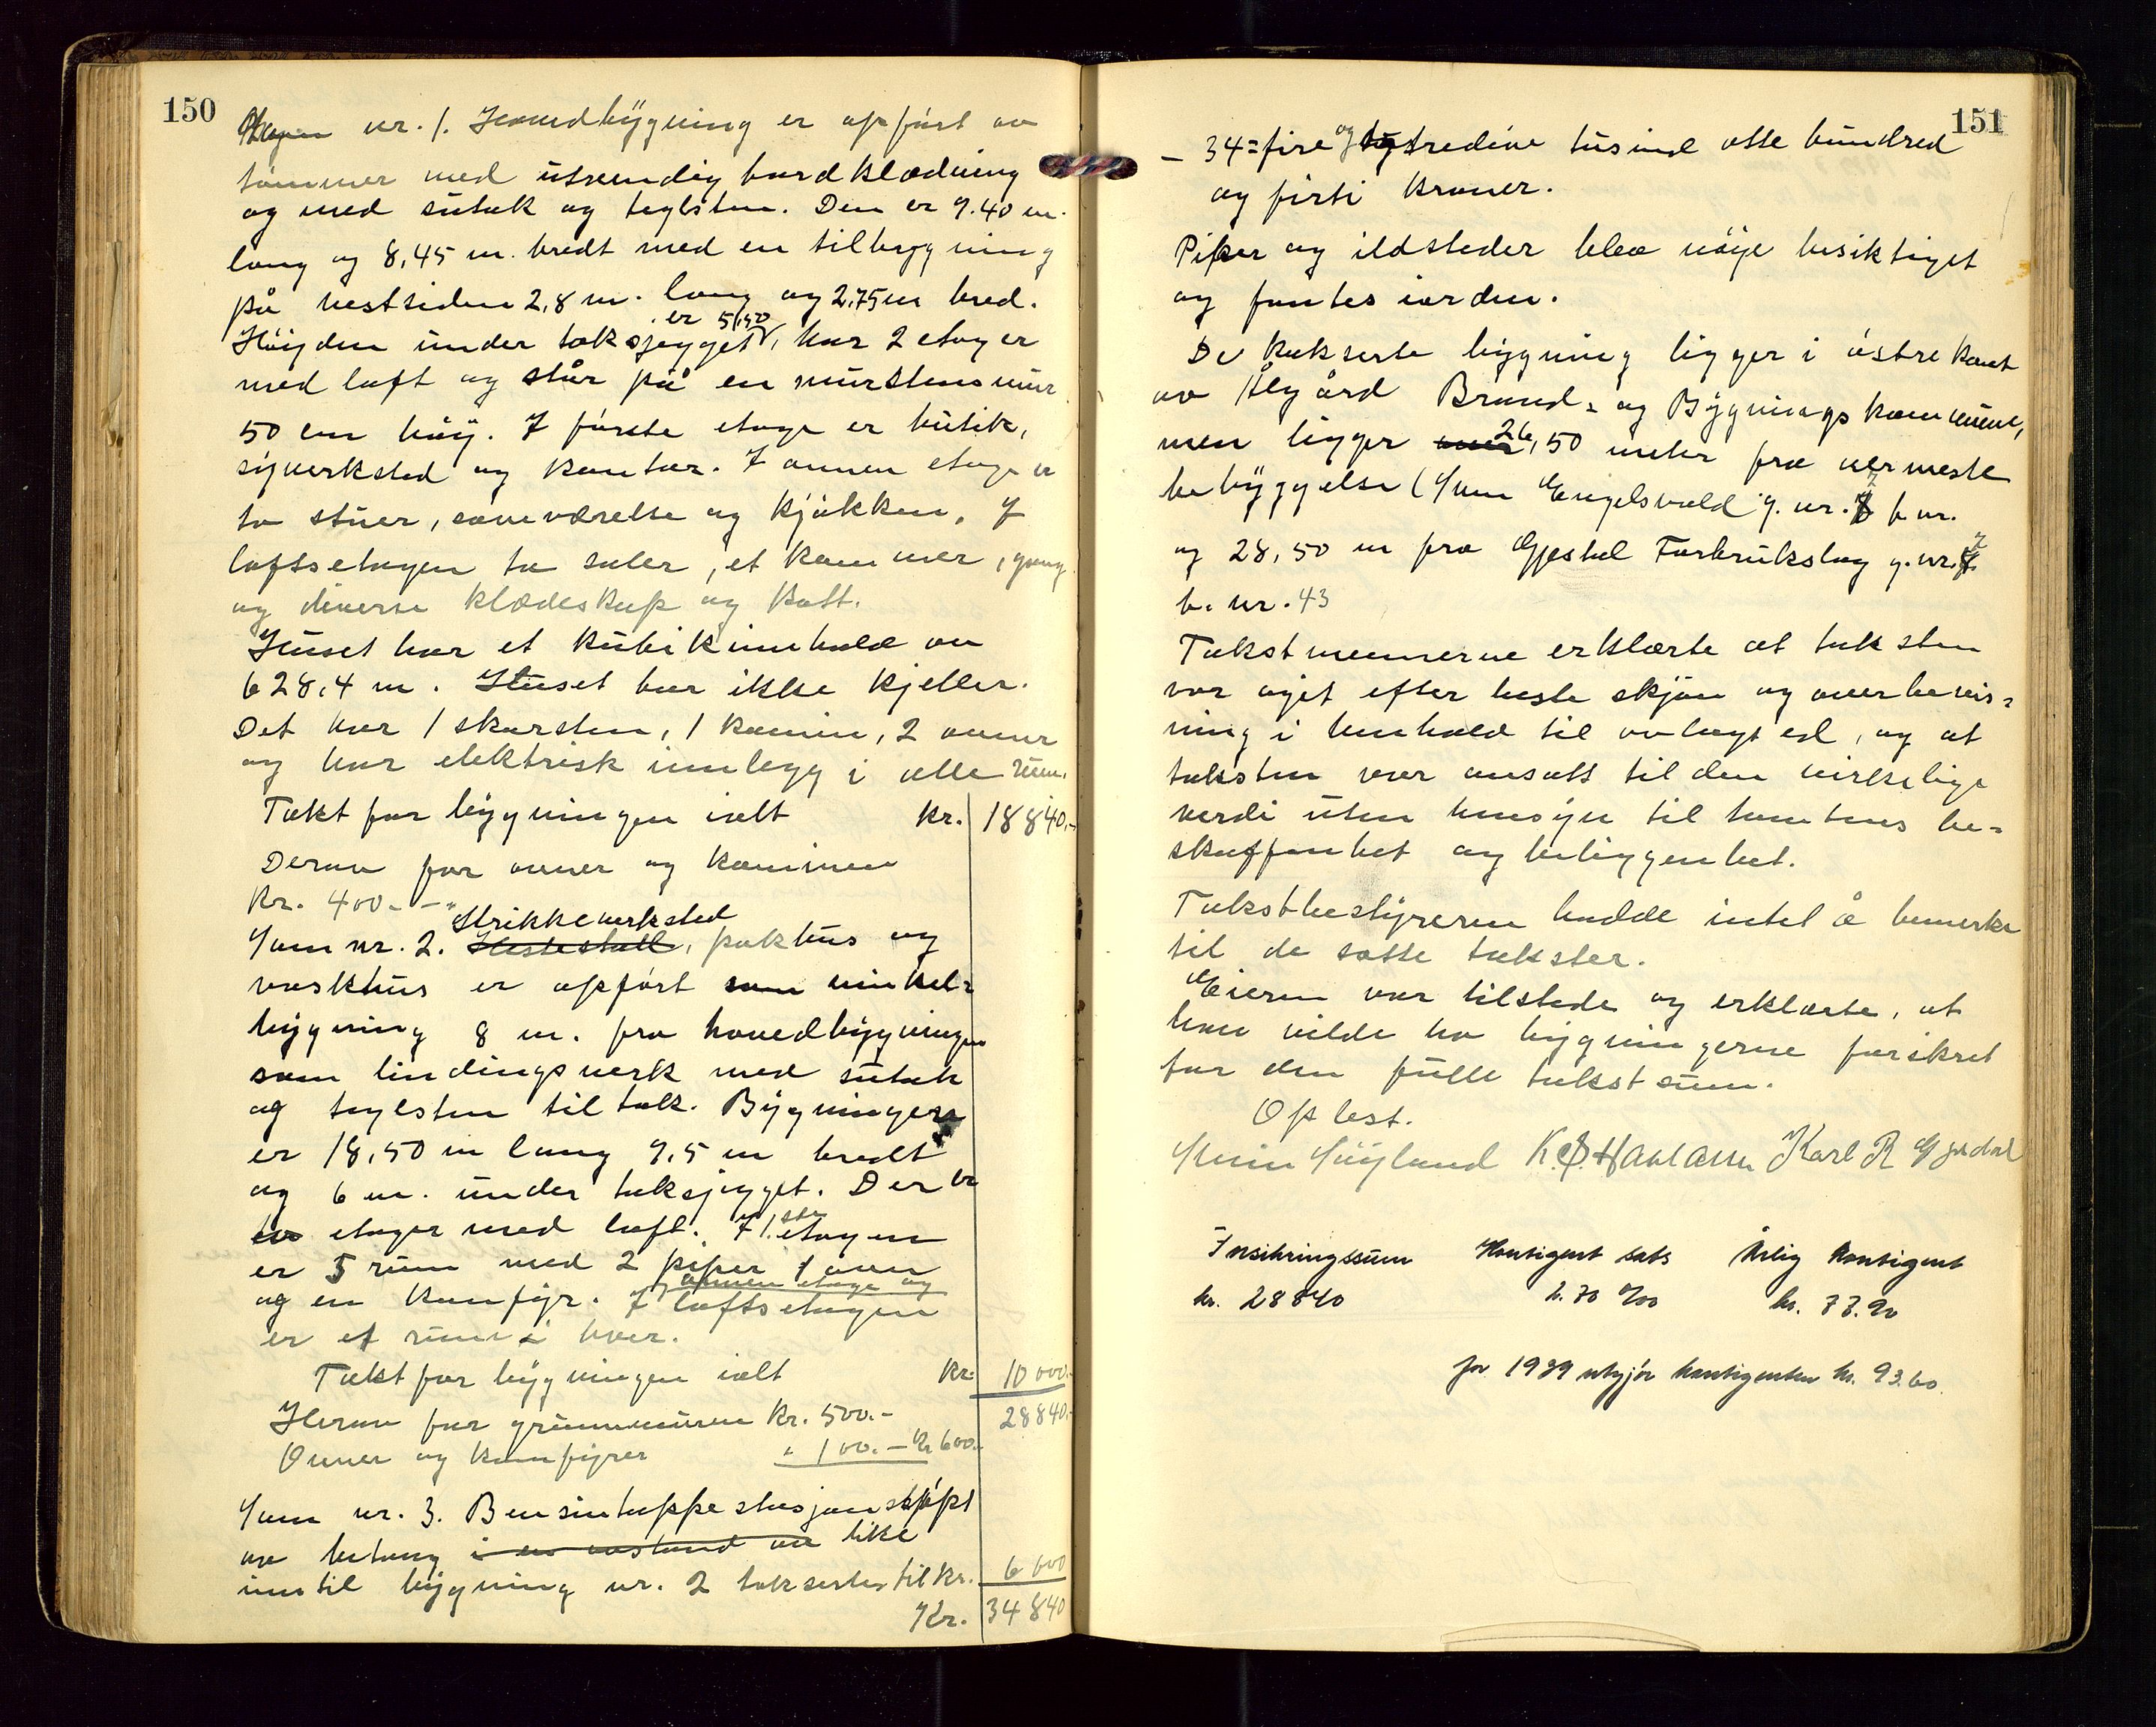 150
nr. 1. Hovedbygning er opført av
tømmer med utvendig bordklædning
og med sutak og teglsten. Den er 9.40 m.
lang og 8,45 m. bredt med en tilbygning
på vestsiden 2,8 m. lang og 2,75 m bred.
Høiden under takskjegget er 5,40, har 2 etager
med loft og står på en murstensmur
50 cm høy. I første etage er butik,
syverksted og kontor. I annen etage er
to stuer, soveværelse og kjøkken. I
loftsetagen to saler, et kammer, gang
og diverse klædeskap og kott.
Huset har et kubikinnhold av
628,4 m. Huset har ikke kjeller.
Det har 1 skorsten, 1 kamin, 2 ovner
og har elektrisk innlegg i alle rum.
Takt for bygningen ialt kr. 18840.-
Derav for ovner og kaminen
Kr. 400.-
Som nr. 2. Hestestall, Strikkeverksted pakhus og
vaskhus er opført som vinkel=
bygning 8 m. fra hovedbygningen
som bindingsverk med sutak
og teglsten til tak. Bygningen
er 18,50 m lang 9,5 m bredt
og 6 m. under takskjegget. Der er
to etager med loft. I 1.ste etagen
er 5 rum med 2 piper 1 ovn
og en komfyr. I annen etage og loftsetagen
er et rum i hver.
Takt for bygningen ialt kr. 10000.-
Herav for grunnmuren Kr. 500.- 28840.-
Ovner og komfyrer " 100.- Kr 600.-
Som nr. 3. Bensintappestasjon støpt
av betong i en avstand av like
inntil bygning nr. 2 takseres til kr. 6000
Kr. 34840
151
- 34=fire og tredive tusind otte hundred
og førti kroner.
Piper og ildsteder blev nøie besiktiget
og fantes iorden.
De takserte bygning ligger i østre kant
av Ålgård Brand= og Bygningskommune,
men ligger 26,50 meter fra nermeste
bebyggelse (Sven Engelsvold g. nr. 7 b nr.
og 28,50 m fra Gjestal Forbrukslag g. nr. 7
b. nr. 43
Takstmennerne erklærte at taksten
var avgit efter beste skjøn og overbevis=
ning i henhold til avlagt ed, og at
taksten var ansatt til den virkelige
verdi uten hensyn til tomtens be=
skaffenhet og beliggenhet.
Takstbestyreren hadde intet å bemerke
til de satte takster.
Eieren var tilstede og erklærte, at
han vilde ha bygningerne forsikret
for den fulle takstsum.
Oplest.
Høyland K. S. Havlann Karl R Gjesdal
Forsikringssum Kontigent sats Årlig kontigent
kr. 28840 2.70 ‰ kr. 77.90
for 1939 utgjør kontigenten kr. 93.60